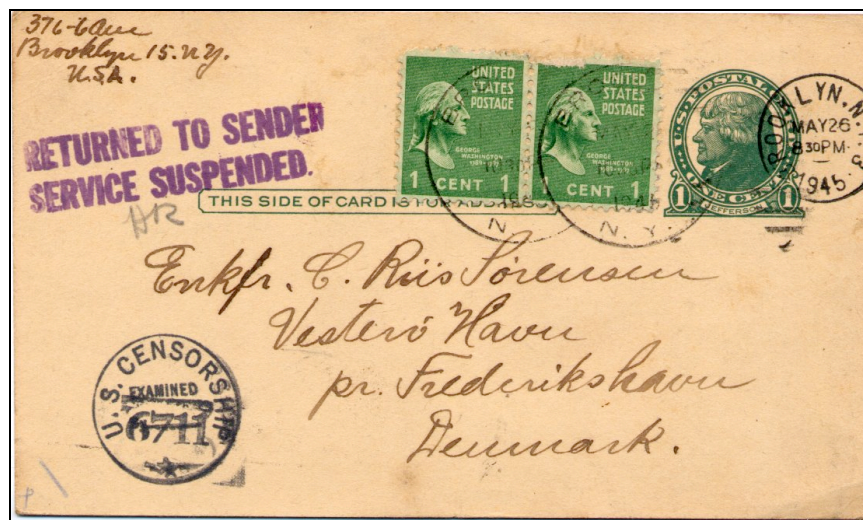 376-6 Ave
Brooklyn 15. N.Y.
U.S.A.
RETURNED TO SENDER
SERVICE SUSPENDED.
UNITED
STATES
POSTAGE
GEORGE
WASHINGTON
1 CENT 1
UNITED
STATES
POSTAGE
GEORGE
WASHINGTON
1 CENT 1
N. Y.
1945
U.S. POSTAL
1 ONE CENT 1
JEFFERSON
BROOKLYN, N.
MAY 26
8 30 PM
1945
THIS SIDE OF CARD IS FOR
Enkfr. C. Riis Sørensen
Vesterø Havn
pr. Frederikshavn
Denmark.
U.S. CENSORSHIP
EXAMINED
6711